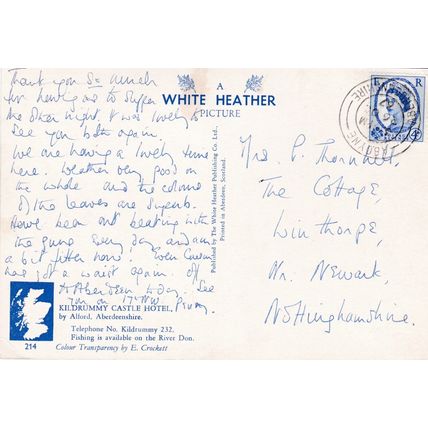 Thank you so much
for having us to supper
the other night. It was lovely to
see you both again.
We are having a lovely time
here. Weather very good on
the whole and the colours
of the leaves are superb.
Have been out beating with
the guns every day and am
a bit fitter now. Even
has got a waist again. Off
to Aberdeen today. See
you on 17th
A
WHITE HEATHER
PICTURE
Published by The White Heather Publishing Co. Ltd.
Printed in Aberdeen, Scotland.
KILDRUMMY CASTLE HOTEL,
by Alford, Aberdeenshire.
Telephone No. Kildrummy 232.
Fishing is available on the River Don.
214
Colour Transparency by E. Crockett
E R
ABOYNE
ABERDEENSHIRE
Mrs P.
The Cottage,
Winthorpe,
Nr. Newark,
Nottinghamshire.